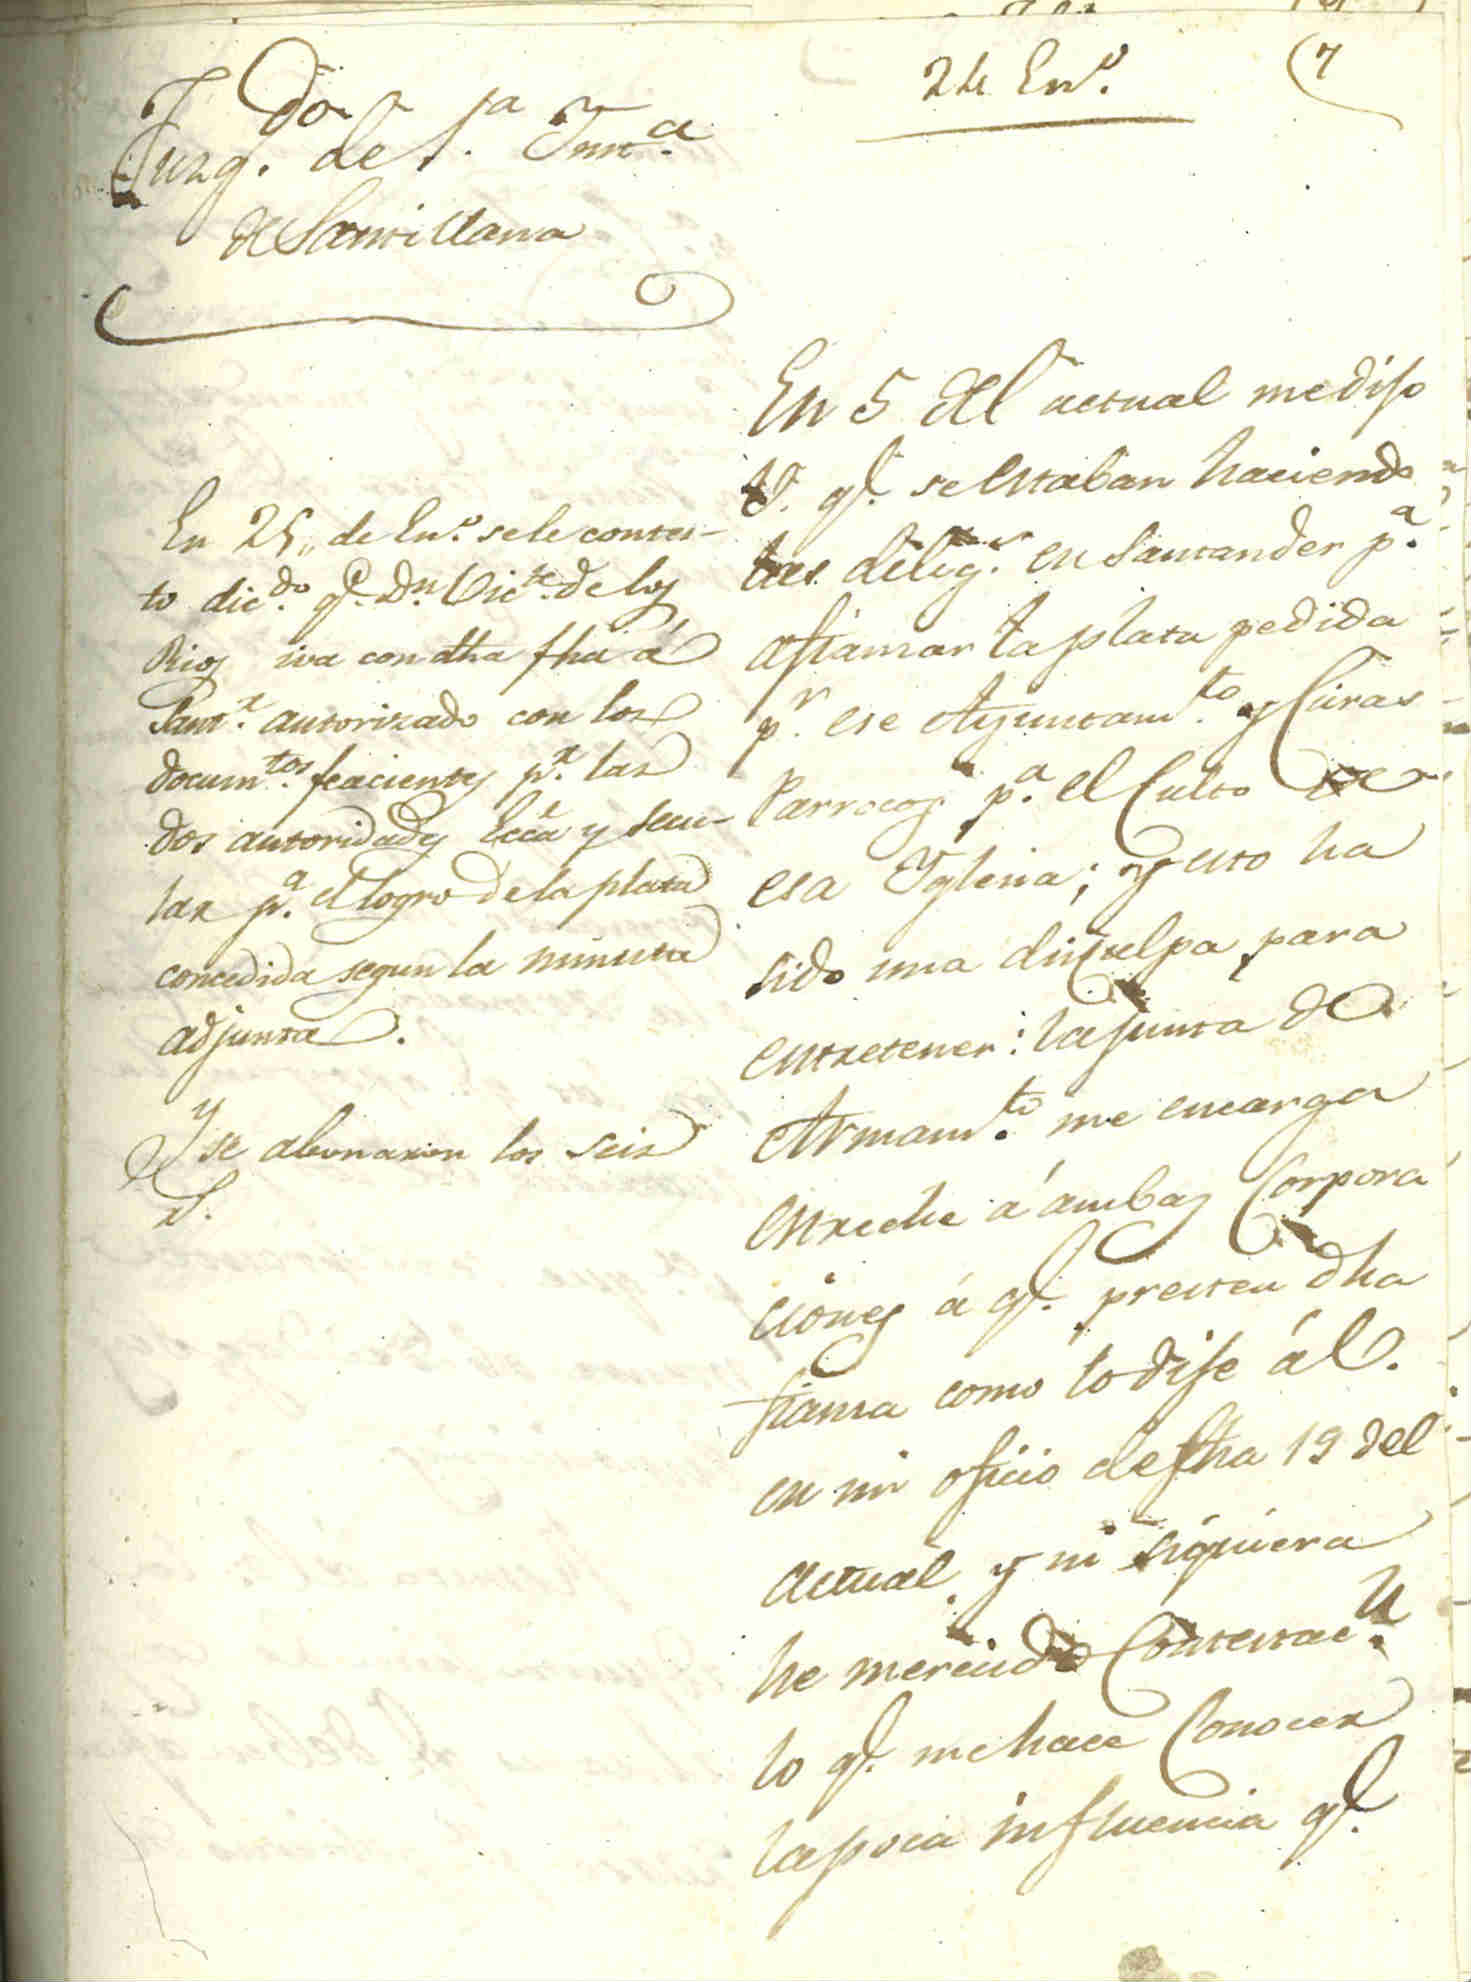 24 En.º
(7
Juzg.do de 1.ª Inst.ª
de Santillana
En 25,, de En.º se le contes-
to dic.do q.e D.n Vic.te de los
Rios iva con dha fha á
Sant.r autorizado con los
docum.tos feacientes p.r las
dos autoridades Ecca y secu-
lar p.a el logro de la plata
concedida segun la minuta
adjunta.
Y se abonaron los seis
En 5 del actual me dijo
V. q.e se estaban haciendo
las dilig.s en Santander p.a
afianzar la plata pedida
p.r ese Ayuntam.to y Curas
Parrocos p.a el Culto de
esa Yglesia; y esto ha
sido una disculpa para
entretener: la junta de
Armam.to me encarga
estreche á ambas Corpora
ciones á q.e presten dha
fianza como lo dije á V.
en mi oficio de fha 19 del
actual y ni siquiera
he merecido Contestac.n
lo q.e me hace Conocer
la poca influencia q.e